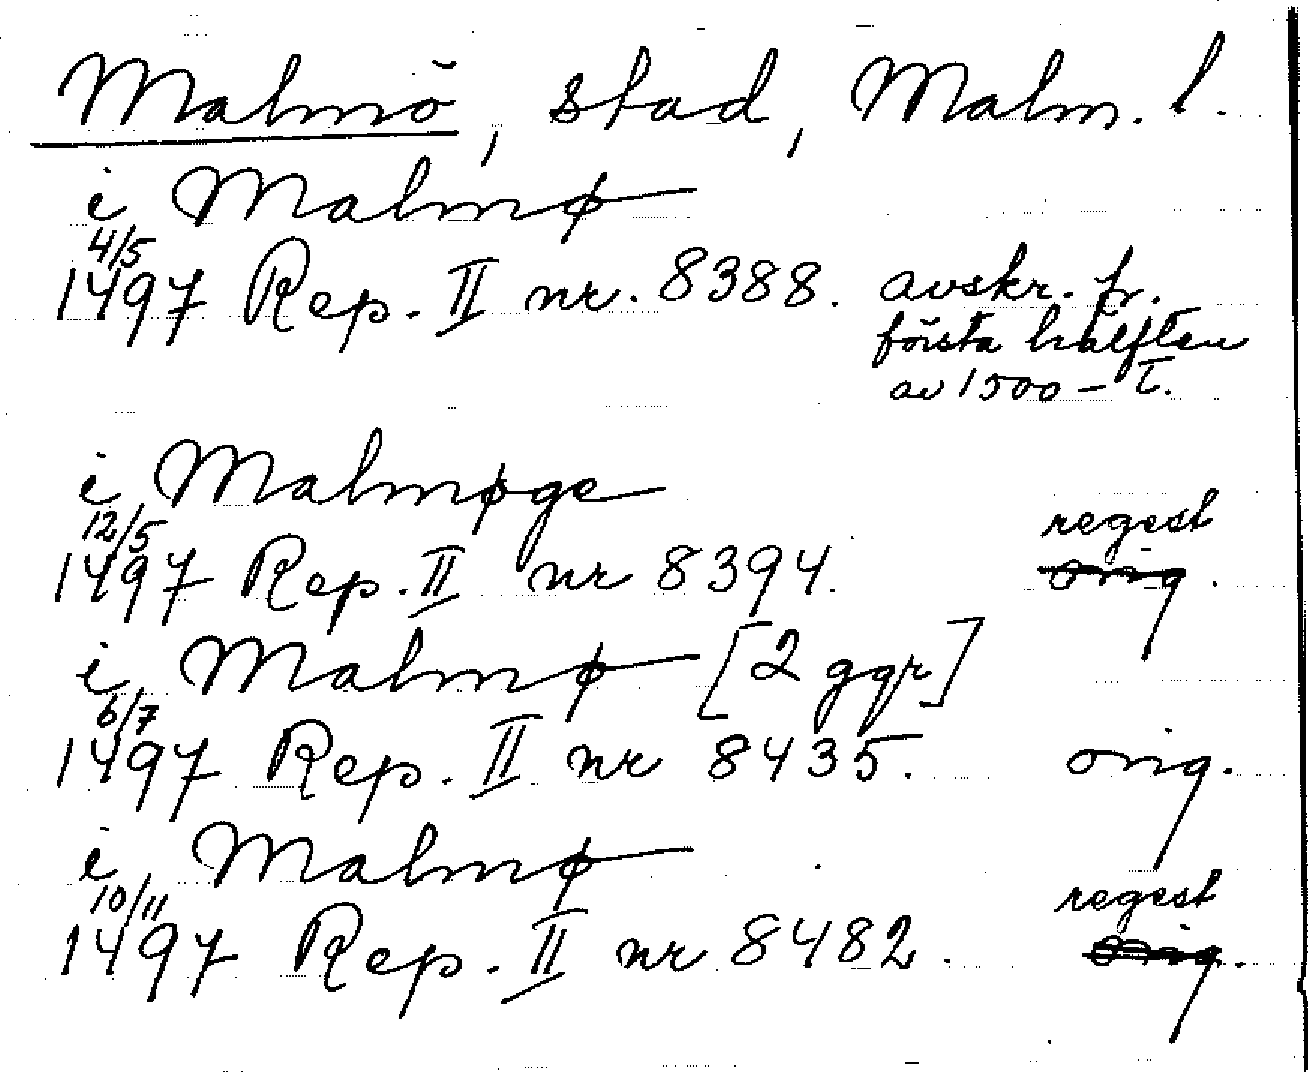 Malmö, stad, Malm. l.
i Malmø
4/5
1497 Rep. II nr. 8388. avskr. fr.
första hälften
av 1500-t.
i Malmøge
12/5 regest
1497 Rep. II nr 8394. orig.
i Malmø [2 ggr]
6/7
1497 Rep. II nr 8435. orig.
i Malmø
10/11 regest
1497 Rep. II nr 8482. orig.